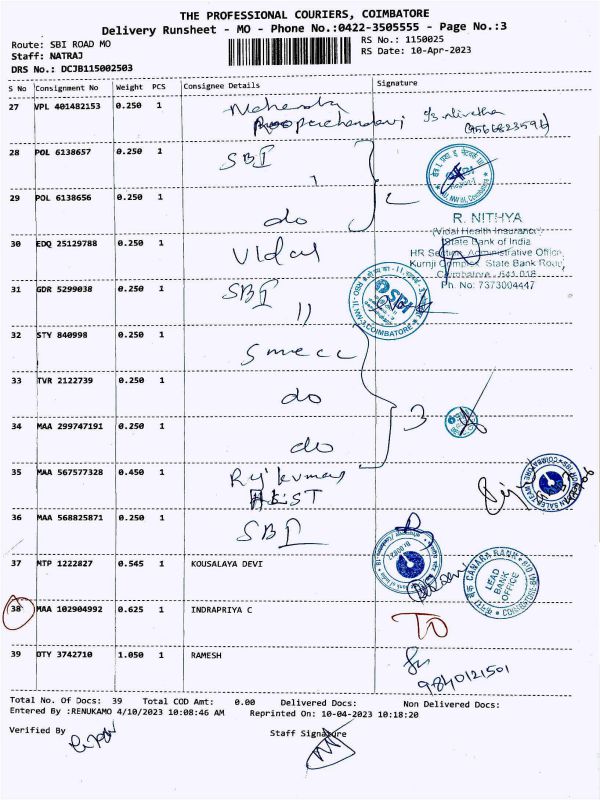 THE PROFESSIONAL COURIERS, COIMBATORE
Delivery Runsheet - MO - Phone No.:0422-3505555 - Page No.:3
Route: SBI ROAD MO
RS No.: 1150025
Staff: NATRAJ
RS Date: 10-Apr-2023
DRS No.: DCJB115002503
S No Consignment No Weight PCS Consignee Details Signature
27 VPL 401482153 0.250 1 Mahendra
28 POL 6138657 0.250 1 SBI
29 POL 6138656 0.250 1 do
R. NITHYA
(Vidal Health Insurance)
State Bank of India
HR Section, Administrative Office,
Kurnji Complex, State Bank Road,
Coimbatore - 641 018
Ph. No: 7373004447
30 EDQ 25129788 0.250 1 Vidal
31 GDR 5299038 0.250 1 SBI
SBI
COIMBATORE
32 STY 840998 0.250 1 Smecc
33 TVR 2122739 0.250 1 do
34 MAA 299747191 0.250 1 do
3
35 MAA 567577328 0.450 1 Rajkumar
36 MAA 568825871 0.250 1 SBI
37 NTP 1222827 0.545 1 KOUSALAYA DEVI
CANARA BANK
LEAD BANK OFFICE
COIMBATORE
38 MAA 102904992 0.625 1 INDRAPRIYA C TO
39 DTY 3742710 1.050 1 RAMESH
9840121501
Total No. Of Docs: 39 Total COD Amt: 0.00 Delivered Docs: Non Delivered Docs:
Entered By :RENUKAMO 4/10/2023 10:08:46 AM Reprinted On: 10-04-2023 10:18:20
Verified By
Staff Signature